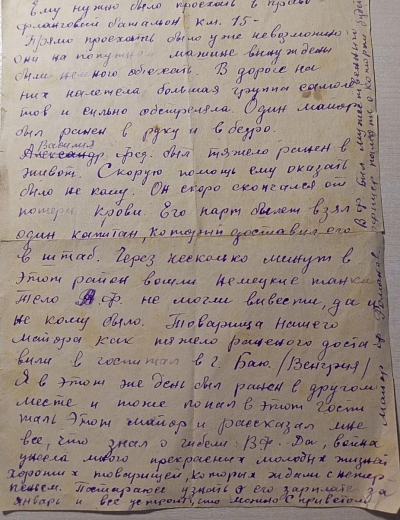 Ему нужно было проехать в право
фланговый батальон км. 15-
Прямо проехать было уже невозможно
они на попутной машине вынуждены
были немного объехать. В дороге на
них налетела большая группа самоле
тов и сильно обстреляла. Один майор
был ранен в руку и в бедро.
Василий
Александр, Фед. был тяжело ранен в
живот. Скорую помощь ему оказать
было не кому. Он скоро скончался от
потери крови. Его парт билет взял
один капитан, который доставил его
в штаб. Через несколько минут в
этот район вошли немецкие танки
Тело В.Ф. не могли вывести, да и
не кому было. Товарища нашего
майора как тяжело раненого доста
вили в госпиталь в г. Баю /Венгрия/
Я в этот же день был ранен в другом
месте и тоже попал в этот госпи
таль Этот майор и рассказал мне
все, что знал о гибели В.Ф. Да, война
унесла много прекрасных молодых жизней
хороших товарищей, которых ждали с нетер
пеньем. Постараюсь узнать о его зарплате за
январь и все устроить, что можно С приветом
Майор
В.Ф. был мужественный
память о котором будет